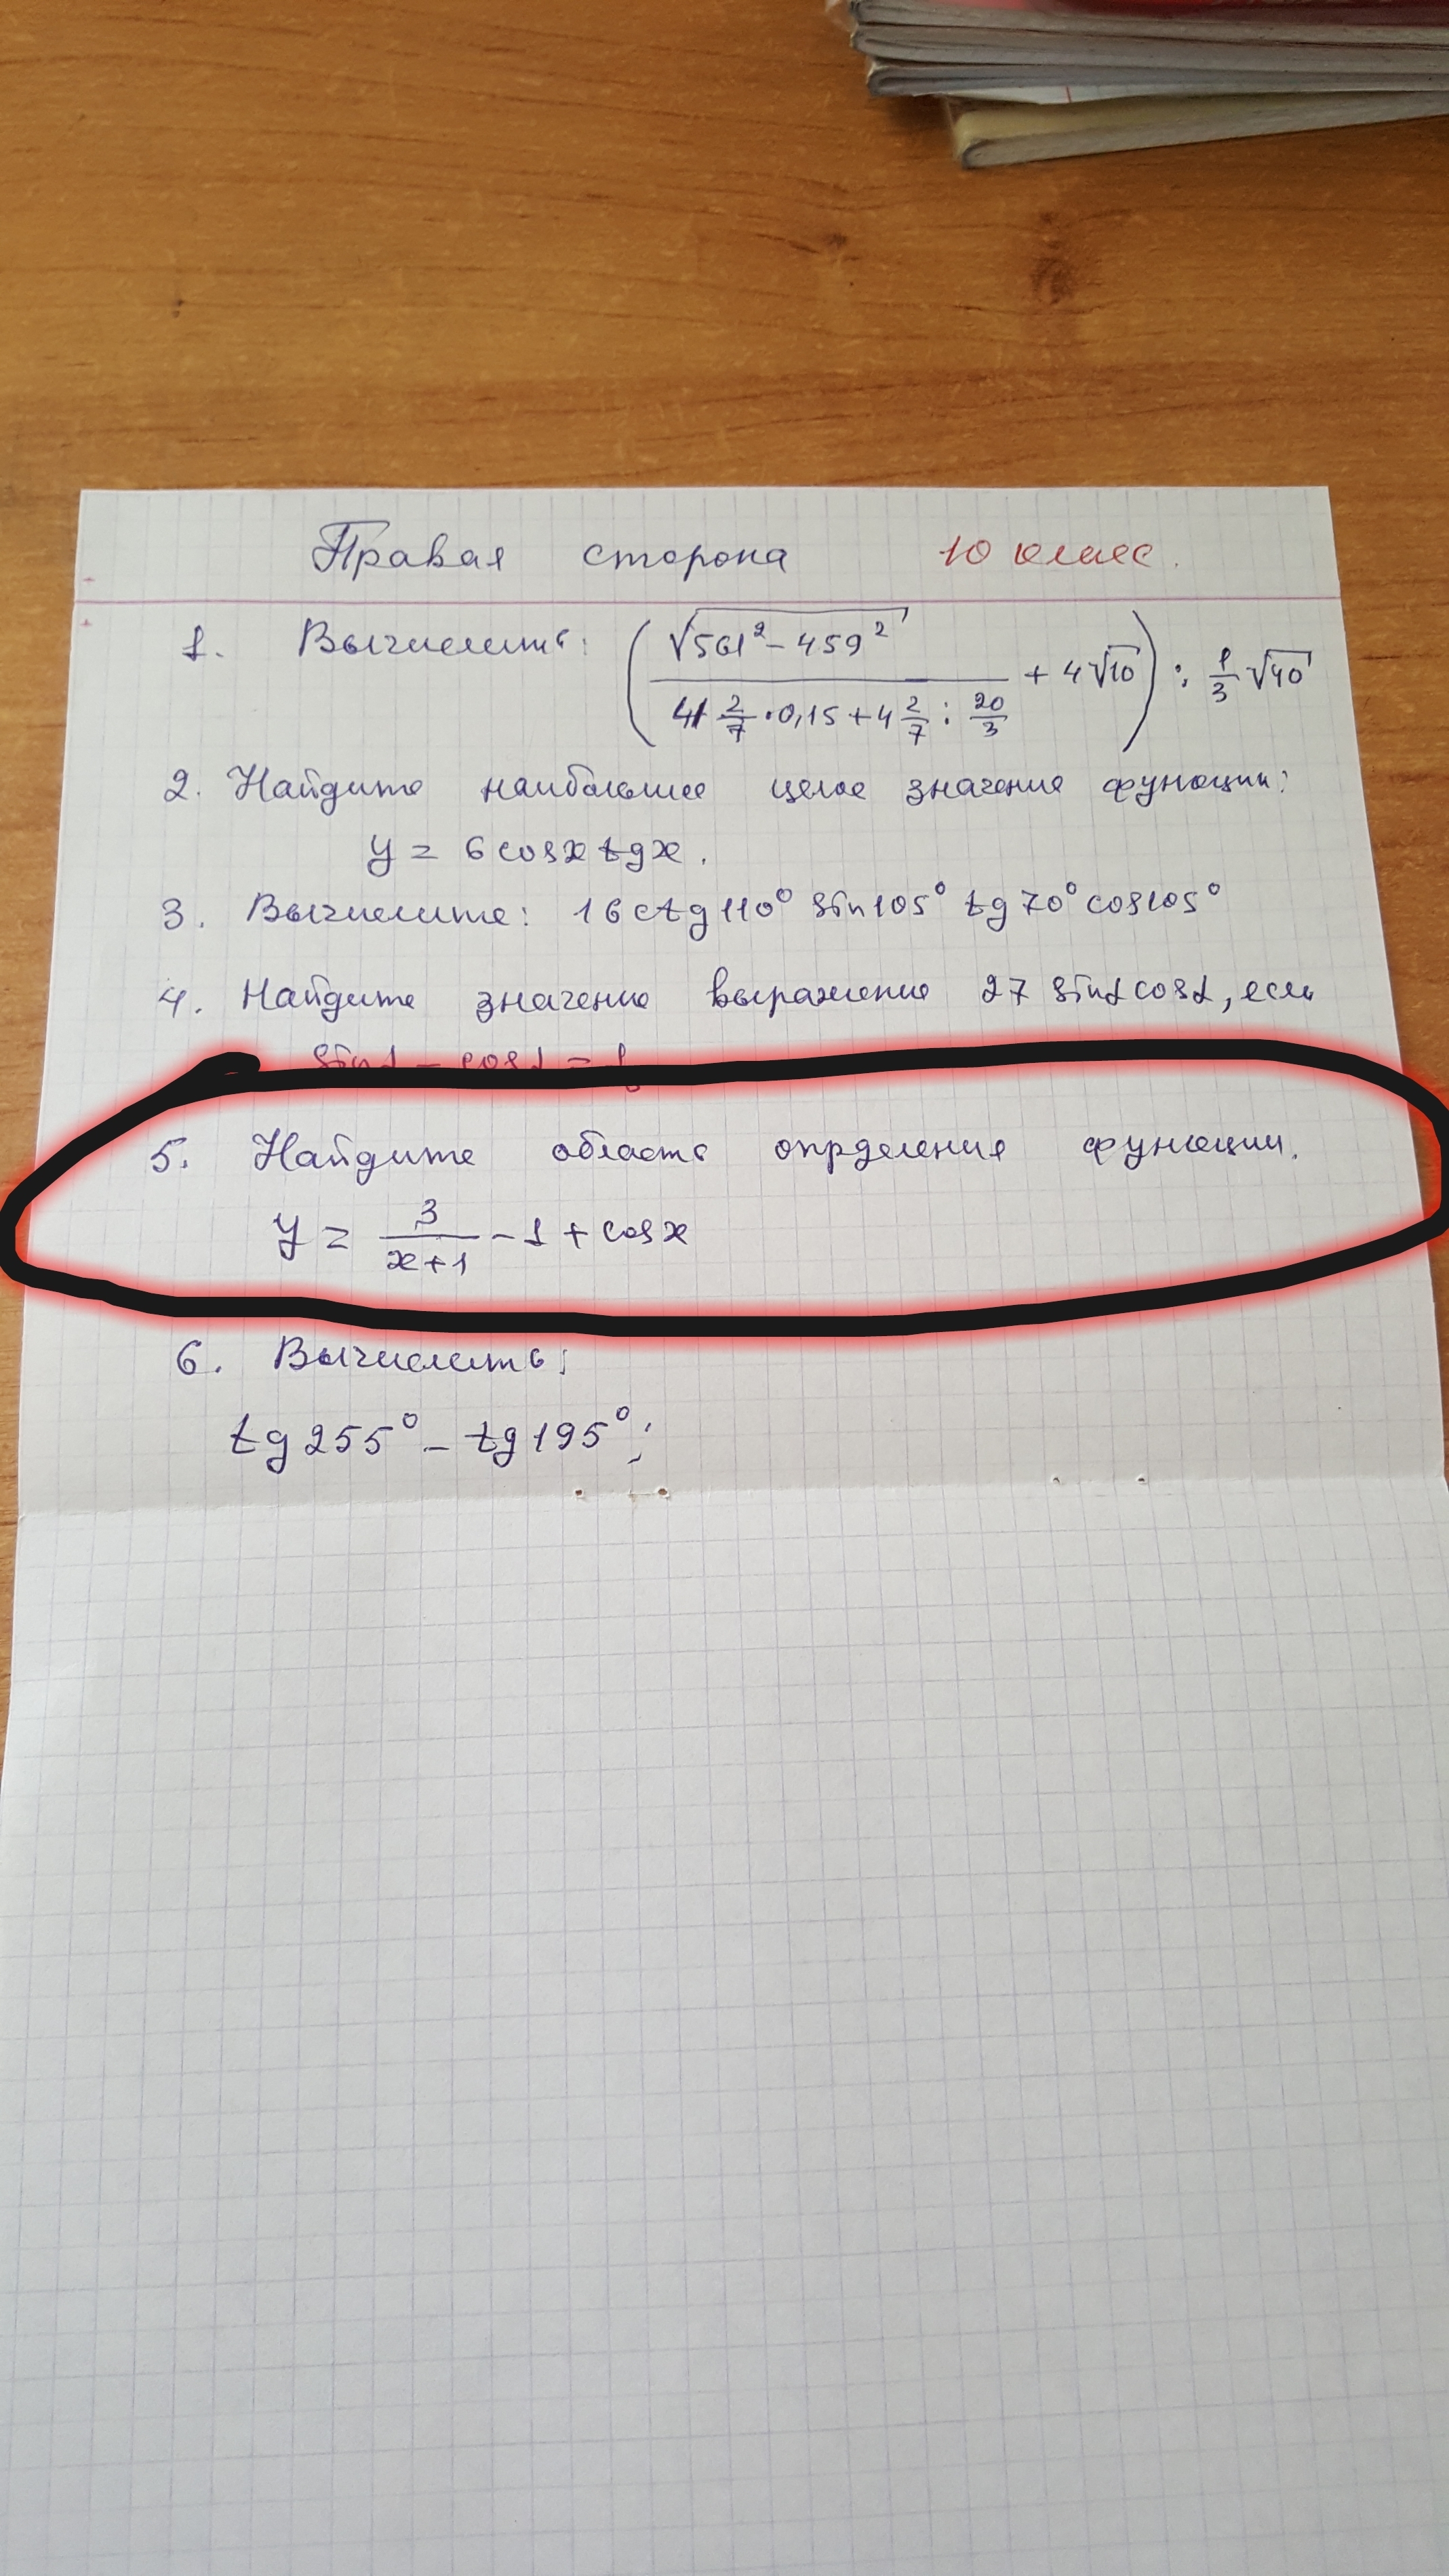 Правая сторона 10 класс.
1. Вычислить: ( √561² - 459² / 41 2/7 · 0,15 + 4 2/7 : 20/3 + 4√10 ) : 1/3 √40
2. Найдите наибольшее целое значение функции:
y = 6 cosx tgx.
3. Вычислите: 16 ctg 110° sin 105° tg 70° cos 105°
4. Найдите значение выражение 27 sinα cosα, если
sinα - cosα =
5. Найдите область опрделения функции.
y = 3/(x+1) - 1 + cosx
6. Вычислить:
tg 255° - tg 195°;